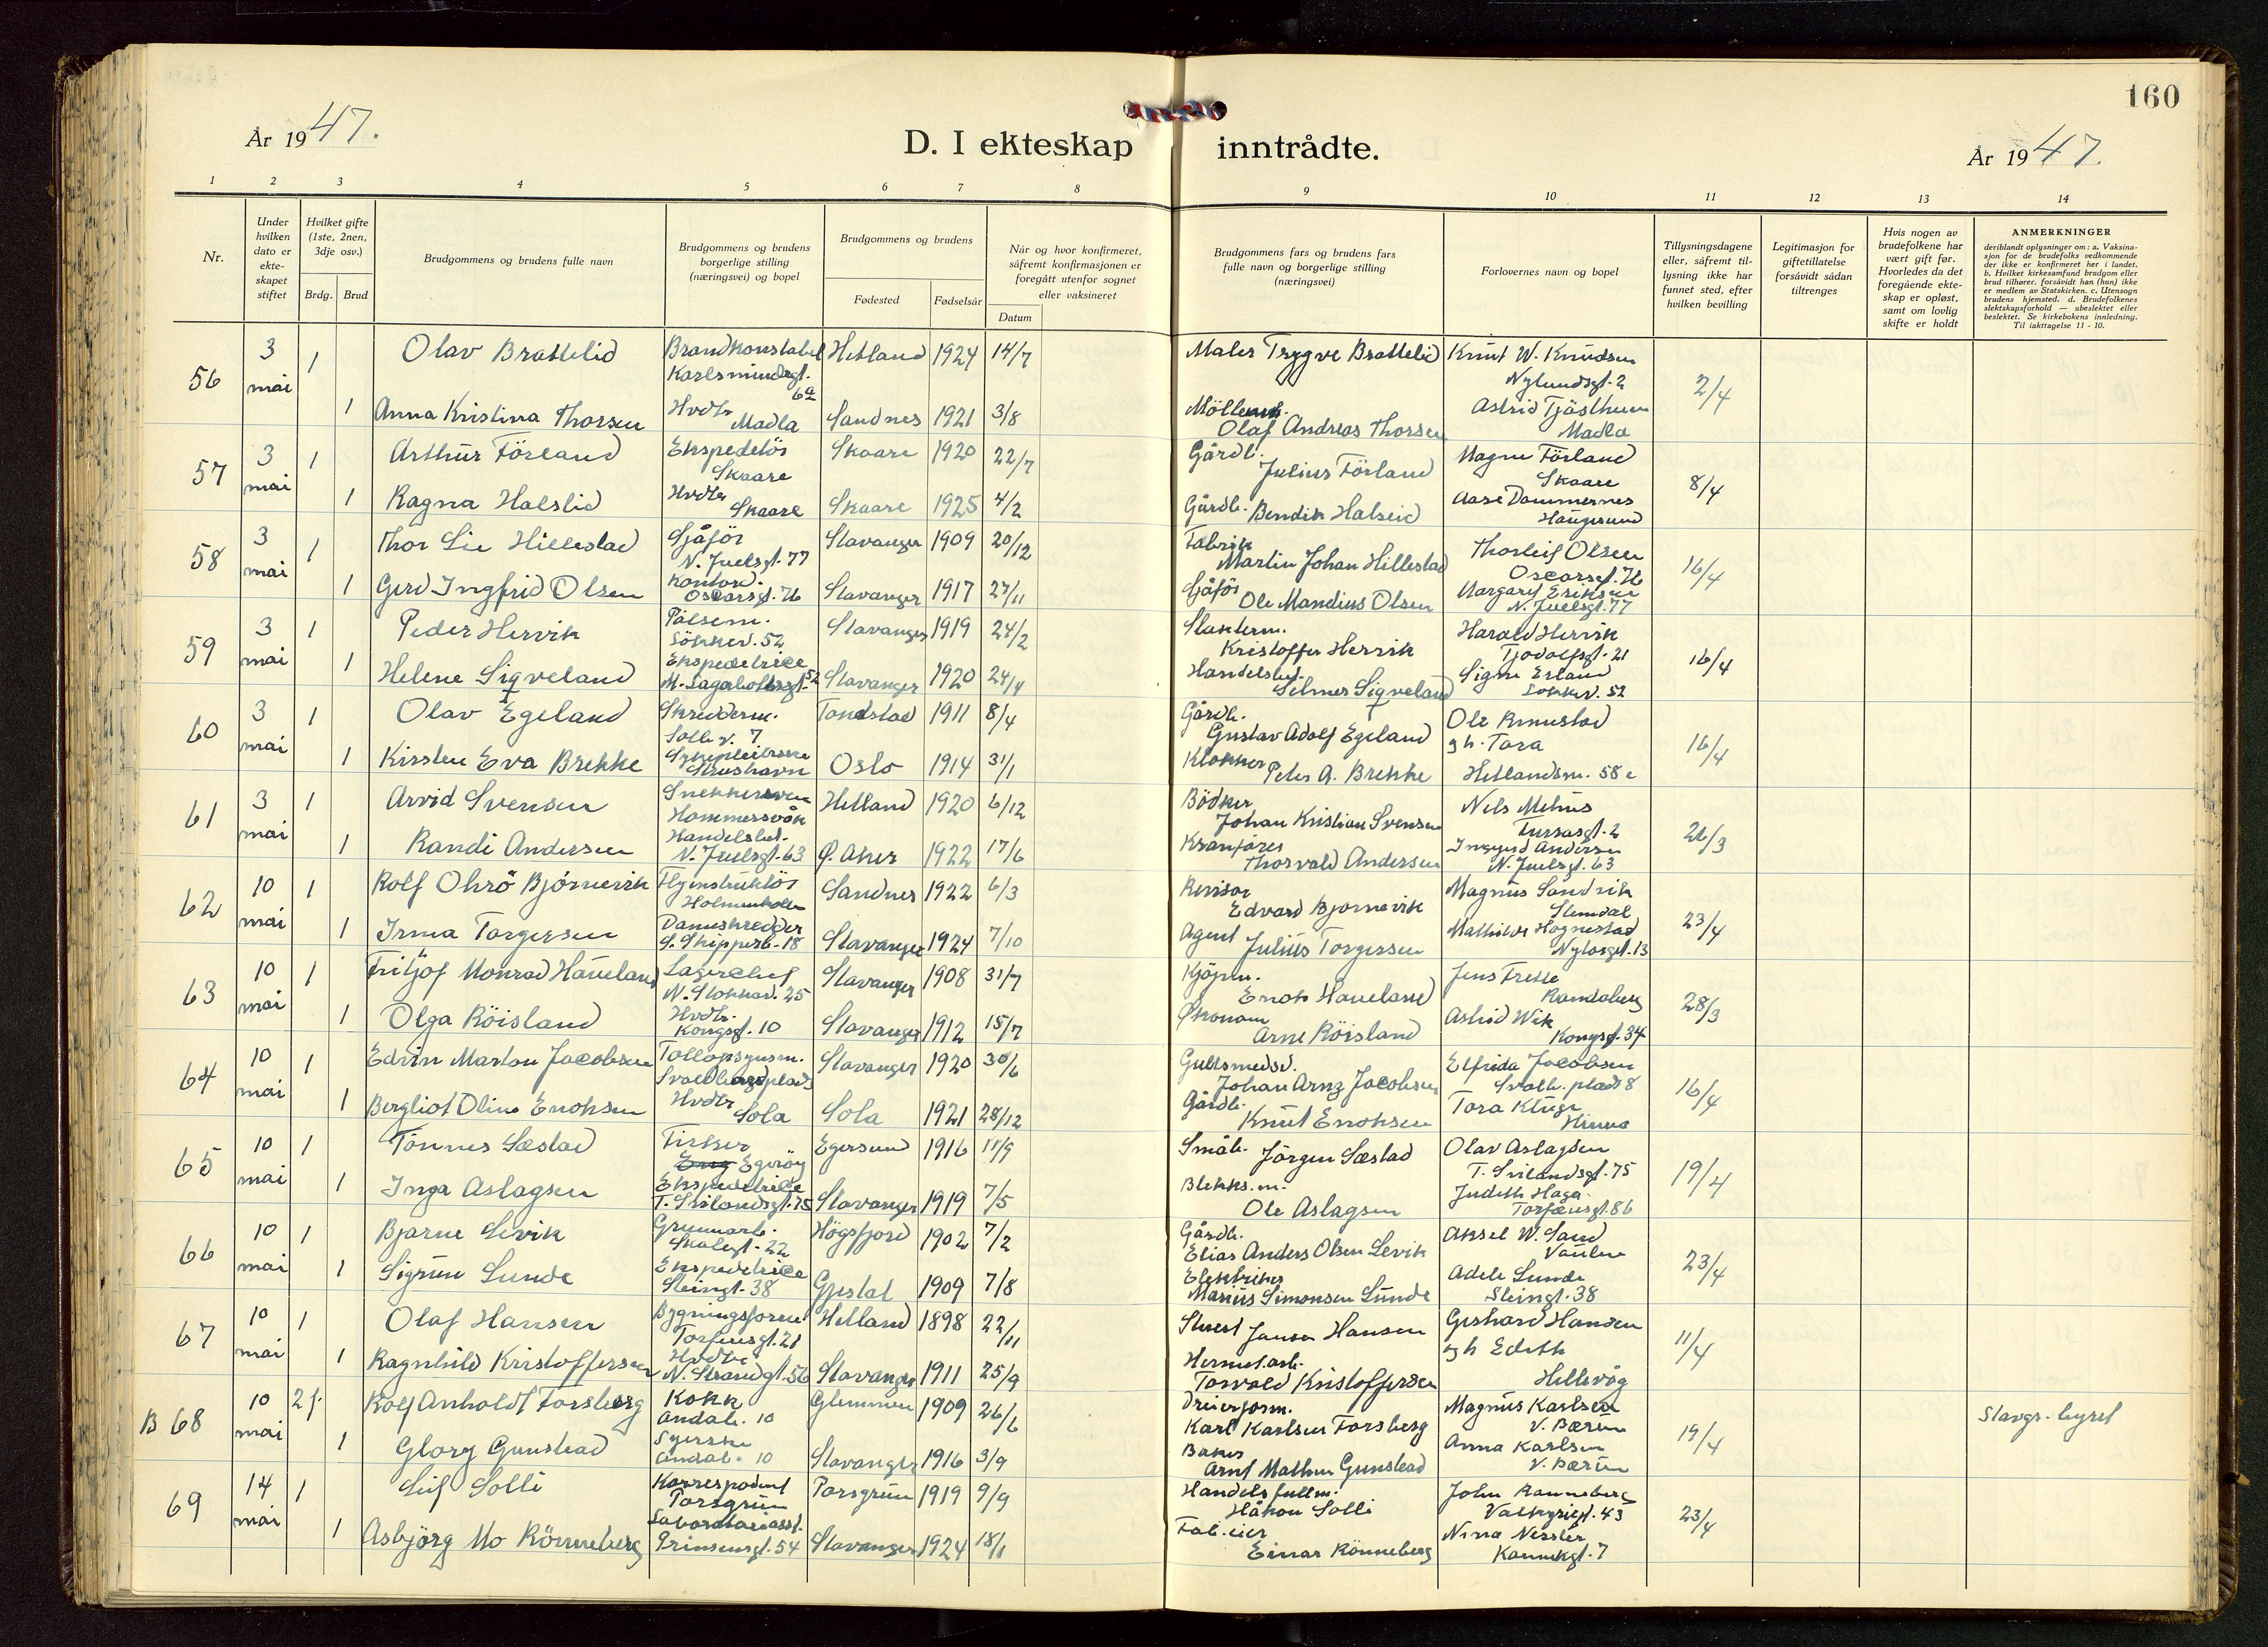 160
År 1947.
D. I ekteskap inntrådte.
År 1947.
1 2 3 4 5 6 7 8 9 10 11 12 13 14
Nr.
Under hvilken dato er ekteskapet stiftet
Hvilket gifte (1ste, 2nen, 3dje osv.)
Brdg. Brud
Brudgommens og brudens fulle navn
Brudgommens og brudens borgerlige stilling (næringsvei) og bopel
Brudgommens og brudens
Fødested Fødselsår
Når og hvor konfirmeret, såfremt konfirmasjonen er foregått utenfor sognet eller vaksineret
Datum
Brudgommens fars og brudens fars fulle navn og borgerlige stilling (næringsvei)
Forlovernes navn og bopel
Tillysningsdagene eller, såfremt tillysning ikke har funnet sted, efter hvilken bevilling
Legitimasjon for giftetillatelse forsåvidt sådan tiltrenges
Hvis nogen av brudefolkene har vært gift før. Hvorledes da det foregående ekteskap er opløst, samt om lovlig skifte er holdt
ANMERKNINGER
deriblandt oplysninger om: a. Vaksinasjon for de brudefolks vedkommende der ikke er konfirmeret her i landet. b. Hvilket kirkesamfund brudgom eller brud tilhører, forsåvidt han (hun) ikke er medlem av Statskirken. c. Utensogn brudens hjemsted. d. Brudefolkenes slektskapsforhold — ubeslektet eller beslektet. Se kirkebokens innledning. Til iakttagelse 11 - 10.
56 3 mai 1 Olav Brattelid Brandkonstabel Karlsmindegt. 6a Hetland 1924 14/7 Maler Trygve Brattelid Knut W. Knudsen Nylundsgt. 2 2/4
1 Anna Kristina Thorsen Hvdtr Madla Sandnes 1921 3/8 Olaf Andreas Thorsen Astrid Madla
57 3 mai 1 Arthur Förland Ekspeditör Skaare Skaare 1920 22/7 Gårdb. Julius Förland Magne Förland Skaare 8/4
1 Ragna Halseid Hvdtr Skaare Skaare 1925 4/2 Gårdb. Bendik Halseid Aase Dammernes Haugesund
58 3 mai 1 Thor Lie Hillestad Sjåför N. Juelsgt. 77 Stavanger 1909 20/12 Fabrik Martin Johan Hillestad Thorleif Olsen Oscarsgt. 76 16/4
1 Gerd Ingfrid Olsen Kontord. Oscarsgt. 76 Stavanger 1917 27/11 Sjåför Ole Mandius Olsen Margaret Eriksen N. Juelsgt. 77
59 3 mai 1 Peder Hervik Pölsem. Stokkav. 52 Stavanger 1919 24/2 Slakterm. Kristoffer Hervik Harald Hervik Tjodolfsgt. 21 16/4
1 Helene Sigveland Ekspeditrice 52 Stavanger 1920 24/4 Handelsbet. Selmer Sigveland Signe Erland 52
60 3 mai 1 Olav Egeland Skredderm. Solbv. 7 Tonstad 1911 8/4 Gårdb. Gustav Adolf Egeland Ole og h. Tora Hetlandsm. 58 c 16/4
1 Kirsten Eva Brekke Sykepleierske Oslo 1914 31/1 Klokker Peter A. Brekke
61 3 mai 1 Arvid Svensen Snekkersven Hommersvåk Hetland 1920 6/12 Bödker Johan Kristian Svensen Nils Mehus Tursasgt. 2 26/3
1 Randi Andersen Handelsbet. N. Juelsgt. 63 Ø. Aker 1922 17/6 Kranförer Thorvald Andersen Ingrid Andersen N. Juelsgt. 63
62 10 mai 1 Rolf Ohrö Bjørnevik Flyinstruktör Sandnes 1922 6/3 Revisor Edvard Bjørnevik Magnus Sandvik Stemdal 23/4
1 Irma Torgersen Dameskredder S. Skipperb. 18 Stavanger 1924 7/10 Agent Julius Torgersen Mathilde Hognestad Nylosgt. 13
63 10 mai 1 Fritjof Monrad Haueland Lagerchef N. Stokkav. 25 Stavanger 1908 31/7 Kjöpm. Enok Haueland Jens Frette Randaberg 28/3
1 Olga Röisland Hvdtr. Kongsgt. 10 Stavanger 1912 15/7 Økonom Arne Röisland Astrid Wik Kongsgt. 34
64 10 mai 1 Edvin Marton Jacobsen Tollopsynsm. Stavanger 1920 30/6 Gullsmedsv. Johan Arnz Jacobsen Elfrida Jacobsen plads 8 16/4
1 Bergliot Oline Enoksen Hvdtr Sola Sola 1921 28/12 Gårdb. Knut Enoksen Tora Kluge Hinna
65 10 mai 1 Tönnes Sæstad Fisker Egeröy Egersund 1916 11/9 Småb. Jörgen Sæstad Olav Aslagsen T. Svilandsgt. 75 19/4
1 Inga Aslagsen Ekspeditrice T. Svilandsgt. 75 Stavanger 1919 7/5 Blikks.m. Ole Aslagsen Judith Haga Torfæusgt. 86
66 10 mai 1 Bjarne Levik Grunnarb. Skolegt. 22 Högsfjord 1902 7/2 Gårdb. Elias Anders Olsen Levik Aksel W. Sand Vaulen 23/4
1 Sigrun Lunde Ekspeditrice Steingt. 38 Gjestal 1909 7/8 Elektriker Marius Simonsen Lunde Adele Lunde Steingt. 38
67 10 mai 1 Olaf Hansen Bygningsform. Torfæusgt. 21 Hetland 1898 22/11 Stuert Hansen Gerhard Hansen og h Edith Hillevåg 11/4
1 Ragnhild Kristoffersen Hvdtr N. Strandgt. 56 Stavanger 1911 25/9 Hermet.arb. Torvald Kristoffersen
B 68 10 mai 2 f. Rolf Anholdt Forsberg Kokk Andab. 10 Glemmen 1909 26/6 Karl Karlsen Forsberg Magnus Karlsen V. Bærum 19/4 Stavgr. byret
1 Glory Gunstead Syerske Andab. 10 Stavanger 1916 3/9 Baker Arnt Mathen Gunstead Anna Karlsen V. Bærum
69 14 mai 1 Leif Solli Korrespodent Porsgrun Porsgrun 1919 9/9 Handelsfullm. Håkon Solli John Rönneberg Valkyriegt. 43 23/4
1 Asbjörg Mo Rönneberg Laboratorieasst. Prinsensgt. 54 Stavanger 1924 18/1 Fab.eier Einar Rönneberg Nina Nessler Kannikgt. 7